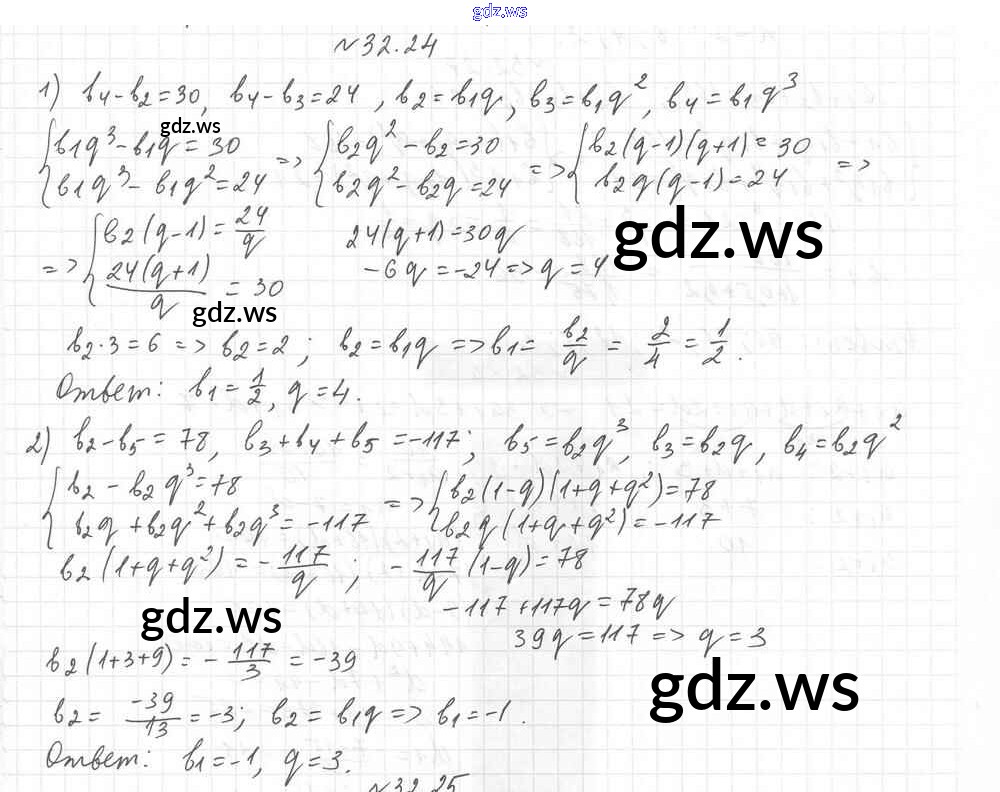 gdz.ws
№32.24
1) b₄-b₂=30, b₄-b₃=24, b₂=b₁q, b₃=b₁q², b₄=b₁q³
gdz.ws
{b₁q³-b₁q=30 => {b₂q²-b₂=30 => {b₂(q-1)(q+1)=30 =>
b₁q³-b₁q²=24 b₂q²-b₂q=24 b₂q(q-1)=24
=> {b₂(q-1)=24/q 24(q+1)=30q
24(q+1)/q = 30 -6q=-24=>q=4
gdz.ws
gdz.ws
b₂·3=6=>b₂=2; b₂=b₁q=>b₁= b₂/q = 2/4 = 1/2.
Ответ: b₁=1/2, q=4.
2) b₂-b₅=78, b₃+b₄+b₅=-117; b₅=b₂q³, b₃=b₂q, b₄=b₂q²
{b₂-b₂q³=78 => {b₂(1-q)(1+q+q²)=78
b₂q+b₂q²+b₂q³=-117 b₂q(1+q+q²)=-117
b₂(1+q+q²)=-117/q; -117/q(1-q)=78
gdz.ws
-117+117q=78q
39q=117=>q=3
b₂(1+3+9)=-117/3=-39
gdz.ws
b₂= -39/13=-3; b₂=b₁q=>b₁=-1.
Ответ: b₁=-1, q=3.
№32.25